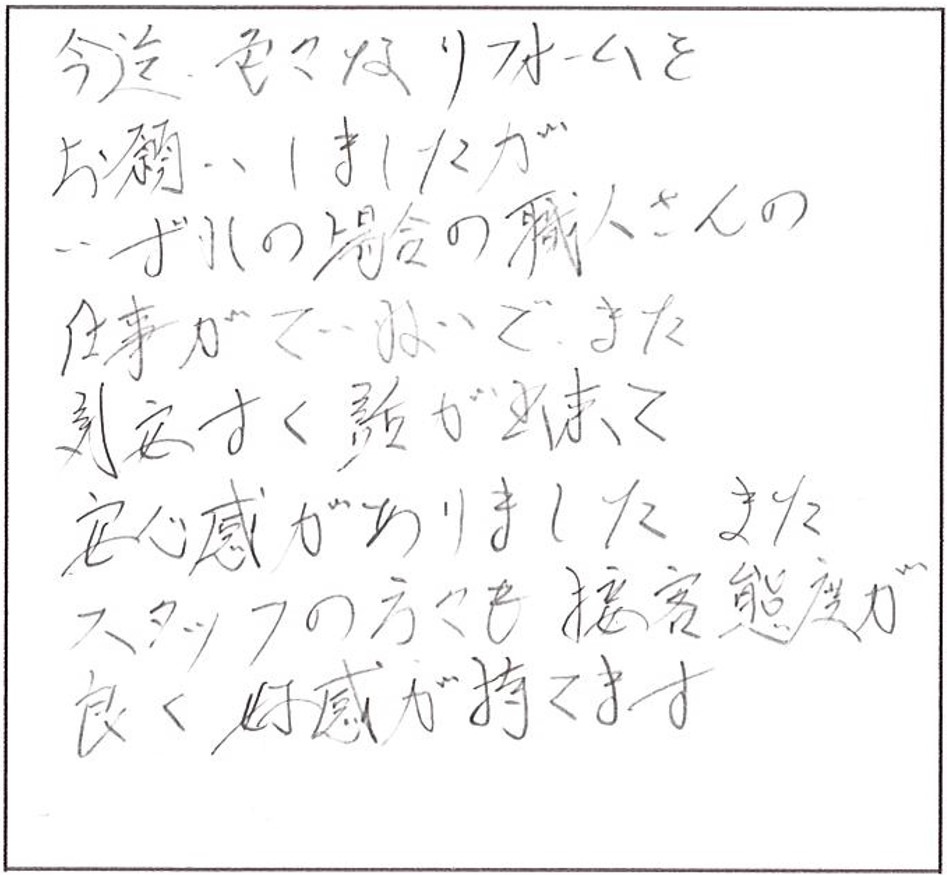 今迄、色々なリフォームを
お願いしましたが
いずれの場合の職人さんの
仕事がていねいで、また
気安すく話が出来て
安心感がありました また
スタッフの方々も接客態度が
良く好感が持てます